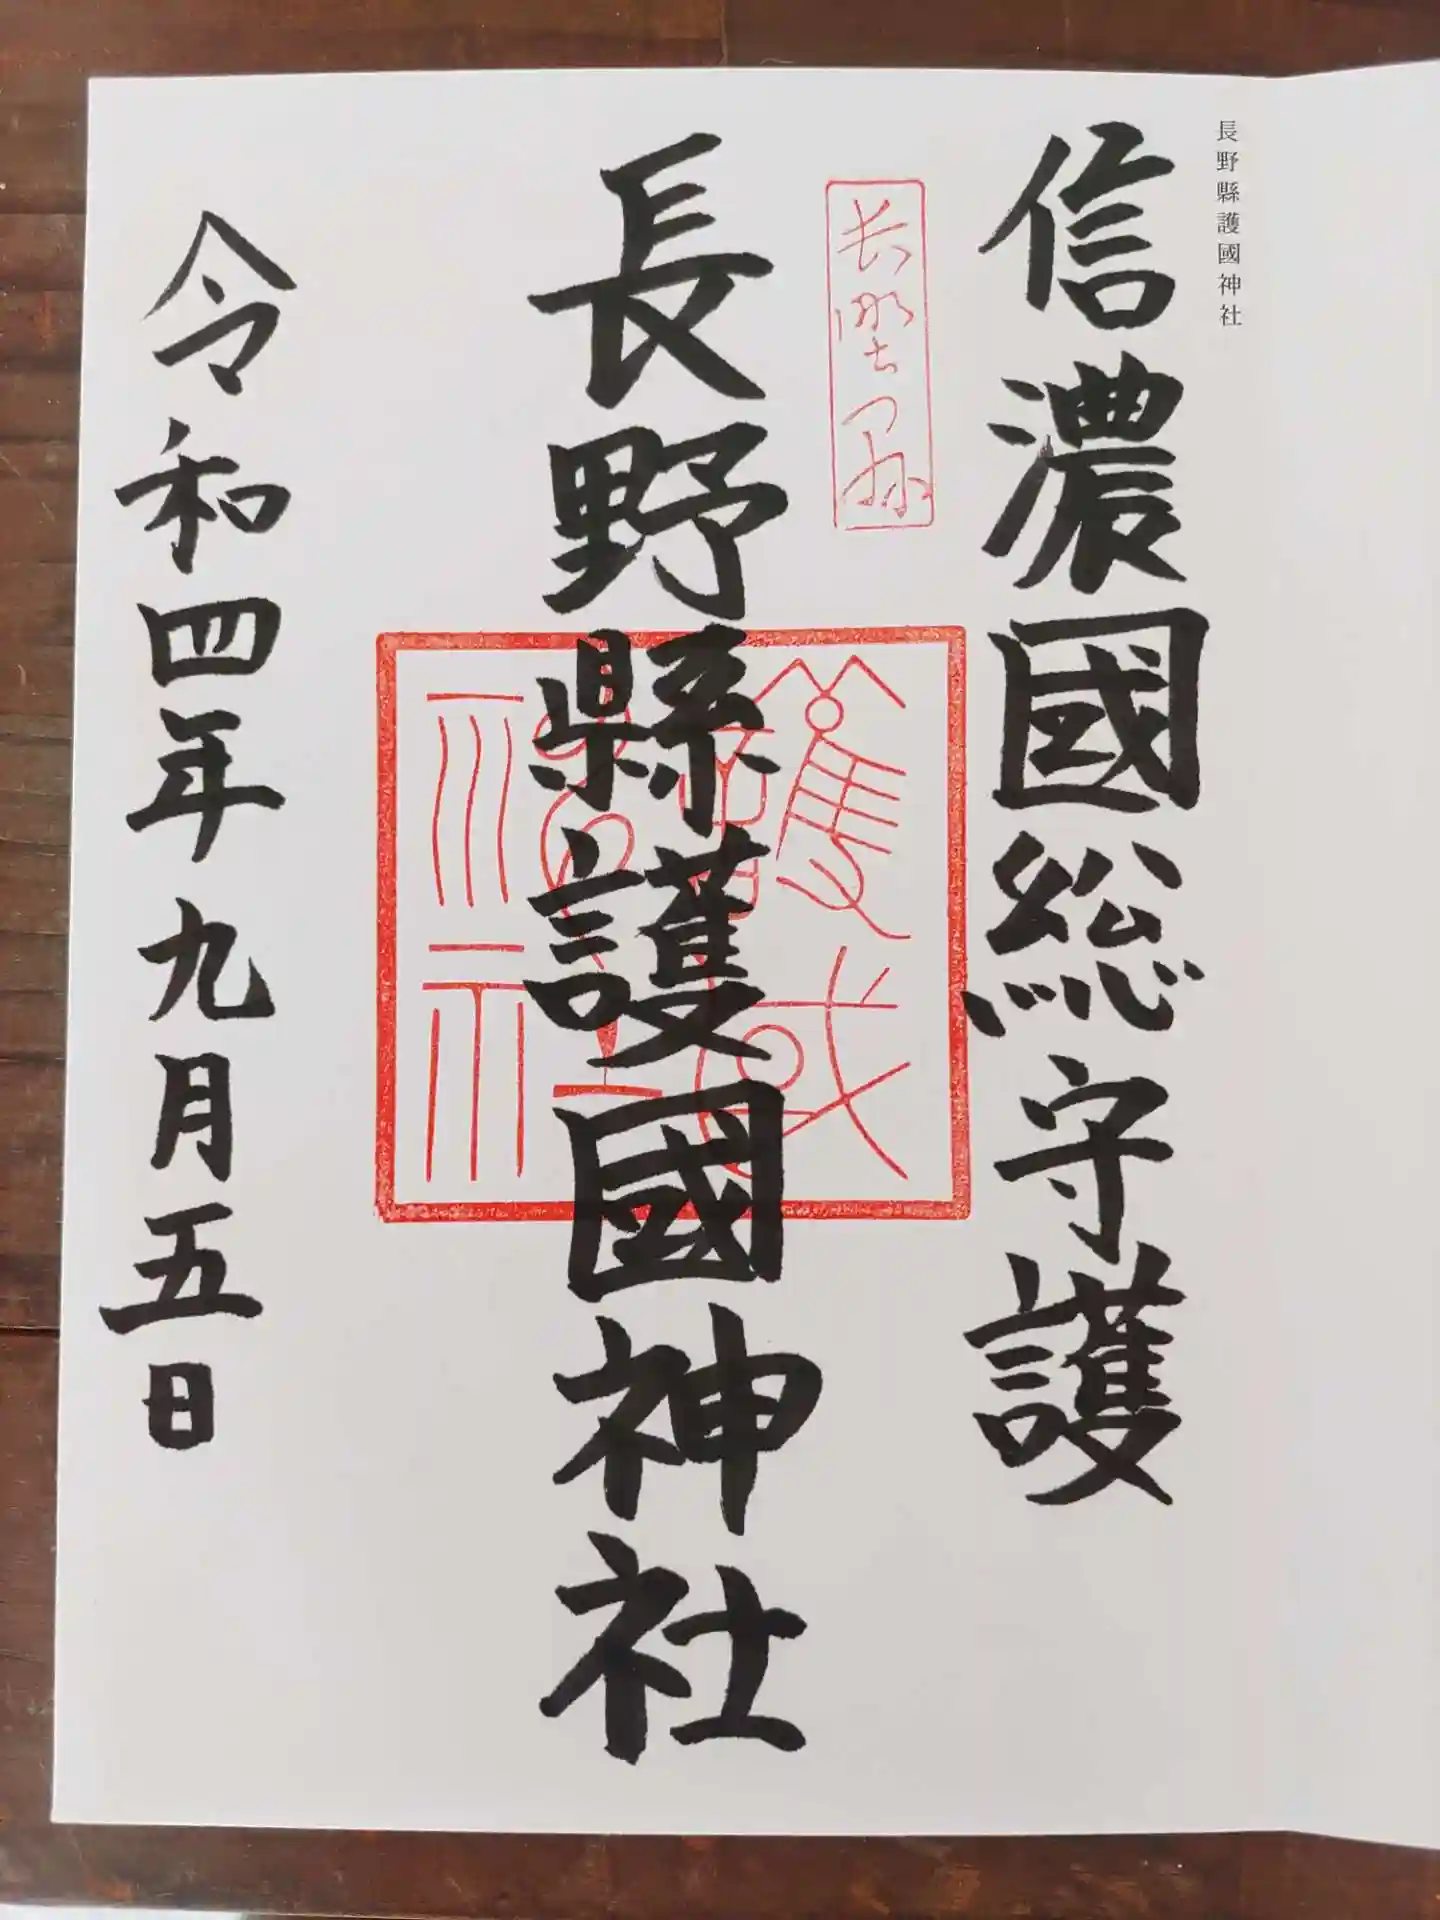 長野縣護國神社
信濃國総守護
長野縣
長野縣護國神社
護國
神社
令和四年九月五日